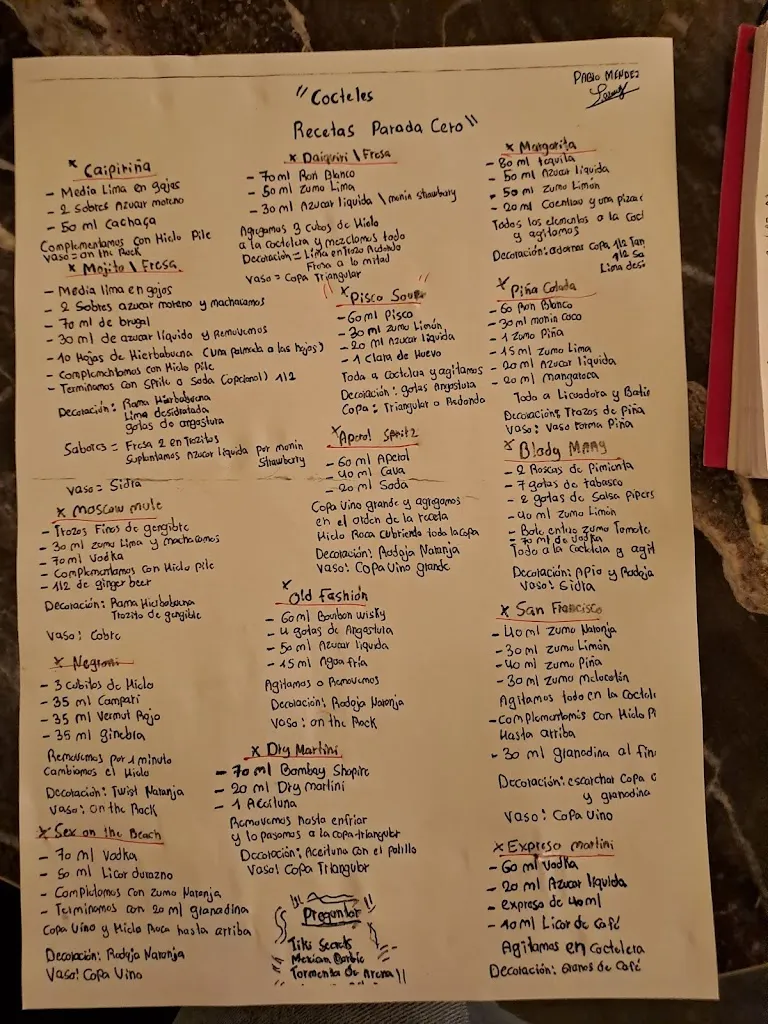 PABLO MÉNDEZ
"Cocteles
Recetas Parada Cero"
x Caipiriña
- Media Lima en gajos
- 2 Sobres Azucar moreno
- 50 ml Cachaça
Complementamos con Hielo Pile
Vaso = on the Rock
x Mojito \ Fresa
- Media lima en gajos
- 2 Sobres azucar moreno y machacamos
- 70 ml de brugal
- 30 ml de azucar líquido y Removemos
- 10 Hojas de Hierbabuena (una palmada a las hojas)
- Complementamos con Hielo Pile
- Terminamos con Sprite o Soda (opcional) 1/2
Decoración: Rama Hierbabuena
Lima desidratada
gotas de angostura
Sabores = Fresa 2 en Trozitos
Suplantamos Azucar líquida por monin
Strawberry
Vaso = Sidra
x Moscow mule
- Trozos Finos de gengibre
- 30 ml zumo Lima y machacamos
- 70 ml Vodka
- Complementamos con Hielo pile
- 1/2 de ginger beer
Decoración: Rama Hierbabuena
Trozito de gengible
Vaso: Cobre
x Negroni
- 3 cubitos de Hielo
- 35 ml Campari
- 35 ml Vermut Rojo
- 35 ml ginebra
Removemos por 1 minuto
Cambiamos el Hielo
Decoración: Twist Naranja
Vaso: on the Rock
x Sex on the Beach
- 70 ml Vodka
- 50 ml Licor durazno
- Completamos con zumo Naranja
- Terminamos con 20 ml granadina
Copa Vino y Hielo Roca hasta arriba
Decoración: Rodaja Naranja
Vaso: Copa Vino
x Daiquiri \ Fresa
- 70 ml Ron Blanco
- 50 ml Zumo Lima
- 30 ml Azucar líquida \ monin strawbary
Agregamos 3 cubos de Hielo
a la coctelera y mezclamos todo
Decoración = Lima en trozo Redondo
Fresa a lo mitad
Vaso = Copa Triangular
x Pisco Sour
- 60 ml Pisco
- 30 ml zumo Limón
- 20 ml Azucar líquida
- 1 Clara de Huevo
Toda a Coctelera y agitamos
Decoración: gotas Angostura
Copa: Triangular o Redondo
x Aperol Spritz
- 60 ml Aperol
- 40 ml Cava
- 20 ml Soda
Copa Vino grande y agregamos
en el orden de la receta
Hielo Roca cubriendo toda la copa
Decoración: Rodaja Naranja
Vaso: Copa Vino grande
x Old Fashión
- 60 ml Bourbon wisky
- 4 gotas de Angostura
- 50 ml Azucar líquida
- 15 ml Agua fría
Agitamos o Removemos
Decoración: Rodaja Naranja
Vaso: on the Rock
x Dry Martini
- 70 ml Bombay Shopire
- 20 ml Dry martini
- 1 Aceituna
Removemos hasta enfriar
y lo pasamos a la copa triangular
Decoración: Aceituna con el palillo
Vaso: Copa Triangular
"Preguntar"
Tiki Secrets
Mexican Barbie
Tormenta de Arena
x Margarita
- 80 ml tequila
- 50 ml Azucar líquida
- 50 ml zumo Limón
- 20 ml Cointreau y una pizca
Todos los elementos a la Coct
y agitamos
Decoración: adornar Copa 1/2 Tan
1/2 Sa
Lima desi
x Piña Colada
- 60 Ron Blanco
- 30 ml monin coco
- 1 zumo Piña
- 15 ml zumo Lima
- 20 ml Azucar líquida
- 20 ml mangaroca
Todo a Licuadora y Batir
Decoración: Trozos de Piña
Vaso: Vaso Forma Piña
x Blody Mary
- 2 Roscas de Pimienta
- 7 gotas de tabasco
- 2 gotas de Salsa Pipers
- 40 ml zumo Limón
- Bote entero zumo Tomate
- 70 ml de vodka
Todo a la Cocktelera y agit
Decoración: Apio y Rodaja
Vaso: Sidra
x San Francisco
- 40 ml zumo Naranja
- 30 ml zumo Limón
- 40 ml zumo Piña
- 30 ml zumo melocotón
Agitamos todo en la Coctele
- Complementamos con Hielo Pi
Hasta arriba
- 30 ml granadina al fin
Decoración: escarchar Copa c
y granadina
Vaso: Copa Vino
x Expreso martini
- 60 ml Vodka
- 20 ml Azucar líquida
- expreso de 40 ml
- 10 ml Licor de Café
Agitamos en Coctelera
Decoración: Granos de Café